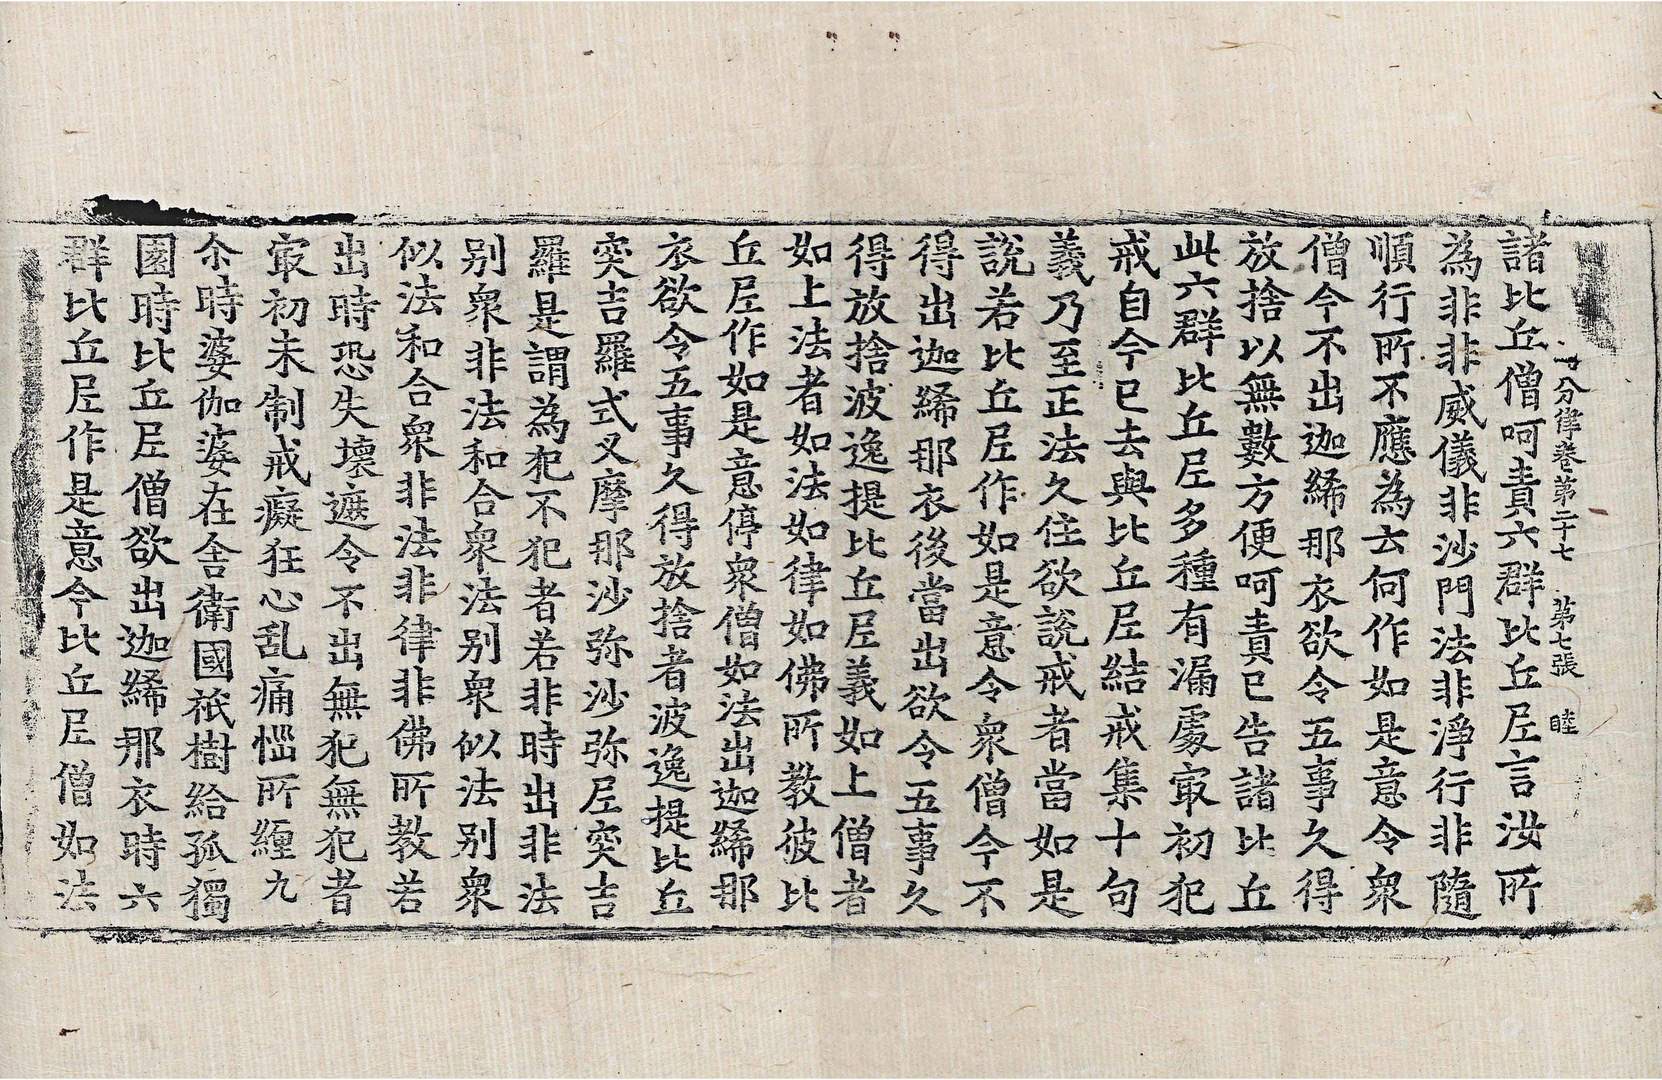 四分律卷第二十七 第七張 睦
諸比丘僧呵責六群比丘尼言汝所
為非非威儀非沙門法非淨行非隨
順行所不應為云何作如是意令衆
僧今不出迦絺那衣欲令五事久得
放捨以無數方便呵責已告諸比丘
此六群比丘尼多種有漏處㝡初犯
戒自今已去與比丘尼結戒集十句
義乃至正法久住欲說戒者當如是
說若比丘尼作如是意令衆僧今不
得出迦絺那衣後當出欲令五事久
得放捨波逸提比丘尼義如上僧者
如上法者如法如律如佛所教彼比
丘尼作如是意停衆僧如法出迦絺那
衣欲令五事久得放捨者波逸提比丘
突吉羅式叉摩那沙弥沙弥尼突吉
羅是謂為犯不犯者若非時出非法
别衆非法和合衆法别衆似法别衆
似法和合衆非法非律非佛所教若
出時恐失壞遮令不出無犯無犯者
㝡初未制戒癡狂心乱痛惱所纏九
尒時婆伽婆在舍衛國祇樹給孤獨
園時比丘尼僧欲出迦絺那衣時六
群比丘尼作是意令比丘尼僧如法